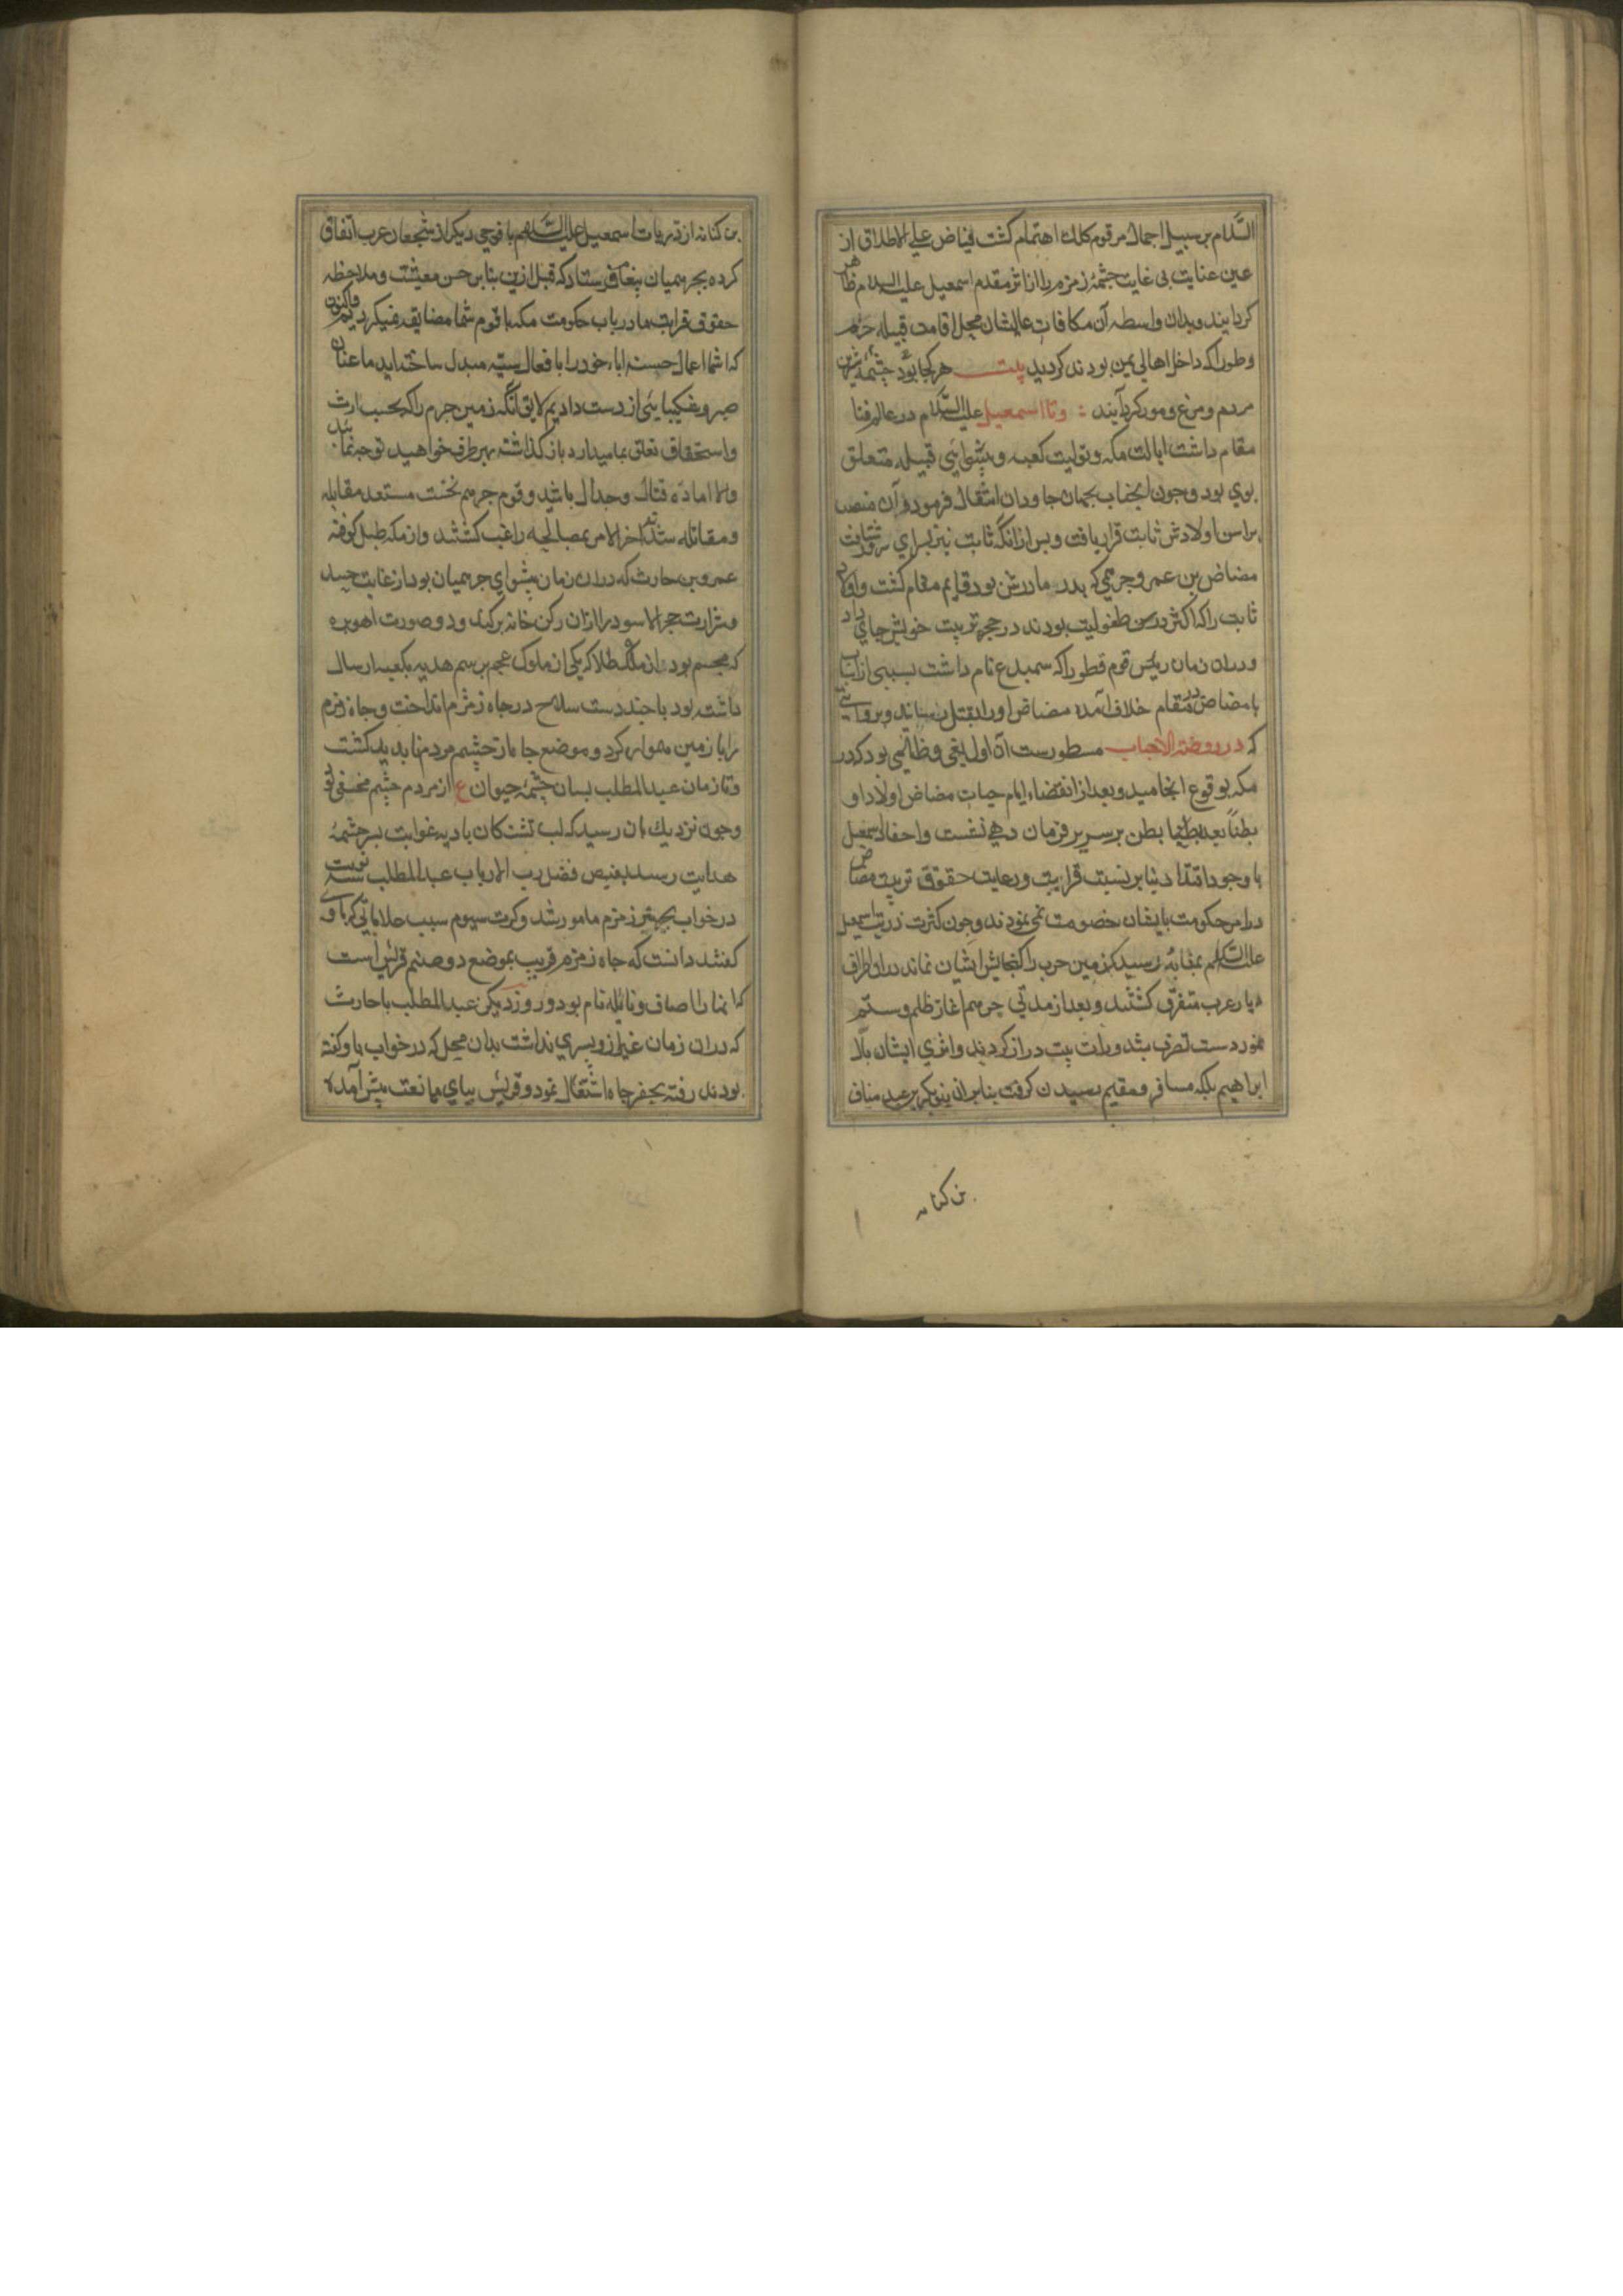 السلام بر سبیل اجمال مرقوم کلک اهتمام کشت فیاض علی الاطلاق از
عین عنایت بی غایت چشمهٔ زمزم را از اثر مقدم اسمعیل علیه السلام ظاهر
کردانید و بدان واسطه آن مکافات عالیشان محل اقامت قبیله جرهم
وطورا که داخل اهالی یمن بودند کردید بیت هر کجا بود چشمهٔ شیرین
مردم و مرغ و مور کرد آیند : و تا اسمعیل علیه السلام در عالم فنا
مقام داشت ایالت مکه و تولیت کعبه و پیشوایی قبیله متعلق
بوی بود و چون آنجناب بجهان جاودان انتقال فرمود آن منصب
براس اولادش ثابت قرار یافت و پس از آنکه ثابت نیز بسرای سرور شتافت
مضاض بن عمرو جرهمی که پدر مادرش بود قایم مقام کشت و اولاد
ثابت را که اکثر در سن طفولیت بودند در حجر تربیت خویش جای داد
و دران زمان رئیس قوم قطورا که سمیدع نام داشت بسببی از اسباب
با مضاض در مقام خلاف آمده مضاض او را بقتل رسانید و بروایتی
که در روضة الاحباب مسطورست آن اول بغی و ظلمی بود که در
مکه بوقوع انجامید و بعد از انقضاء ایام حیات مضاض اولاد او
بطناً بعد بطن بر سریر فرمان دهی نشست و احفاد اسمعیل
با وجود اقتدا دنیا بر نسبت قرابت و رعایت حقوق تربیت مضاض
در امر حکومت بایشان خصومت نمی نمودند و چون کثرت ذریت اسمعیل
علیه السلام بمثابهٔ رسید که زمین حرب را کنجایش ایشان نماند در اطراف
دیار عرب متفرق کشتند و بعد از مدتی جرهم اغاز ظلم و ستم
نمود دست تصرف بنذورات بیت دراز کردند و اثر ایشان بآل
ابراهیم بلکه مسافر و مقیم رسیدن کرفت بنابران بنو بکر بن عبد مناف
بن کنانه
بن کنانه از ذریات اسمعیل علیه السلام با فوجی دیکر از شجعان عرب اتفاق
کرده بجرهمیان پیغام فرستاد که قبل ازین بنابر حسن معیشت و ملاحظه
حقوق قرابت ما در باب حکومت مکه با قوم شما مضایقه نمیکردیم و اکنون
که شما اعمال حسنه اباء خود را با فعال سیئه مبدل ساخته اید ما عنان
صبر و شکیبایی از دست دادیم لایق آنکه زمین حرم را که بحسب ارث
و استحقاق تعلق بما میدارد باز کذاشته بهر طرف خواهید توجه نمایید
والا اماده قتال و جدال باشید و قوم جرهم نخست مستعد مقابله
و مقاتله شدند اخر الامر بمصالحه راغب کشتند و از مکه طبل کوفته
عمرو بن حارث که دران زمان پیشوای جرهمیان بود از غایت حسد
و شرارت حجر الاسود را از ان رکن خانه برکند و دو صورت اهوبره
که مجسم بود از طلا که یکی از ملوک عجم برسم هدیه بکعبه ارسال
داشته بود با چند دست سلاح در چاه زمزم انداخت و چاه زمزم
را با زمین هموار کرد و موضع چاه از چشم مردم ناپدید کشت
و تا زمان عبد المطلب بسان چشمهٔ حیوان ع از مردم چشم مخفی بود
و چون نزدیك بان رسید که لب تشنکان بادیه غوایت بسرچشمهٔ
هدایت رسند بفیض فضل رب الارباب عبد المطلب سه نوبت
در خواب بحفر زمزم مامور شد و کرت سیوم سبب علاماتی که با وی
کفتند دانست که چاه زمزم قریب بموضع دو صنم قریش است
که انها را اصاف و نائله نام بود و روز دیکر عبد المطلب با حارث
که دران زمان غیر از و پسری نداشت بدان محل که در خواب با او کفته
بودند رفته بحفر چاه اشتغال نمود و قریش بپای ممانعت پیش آمده